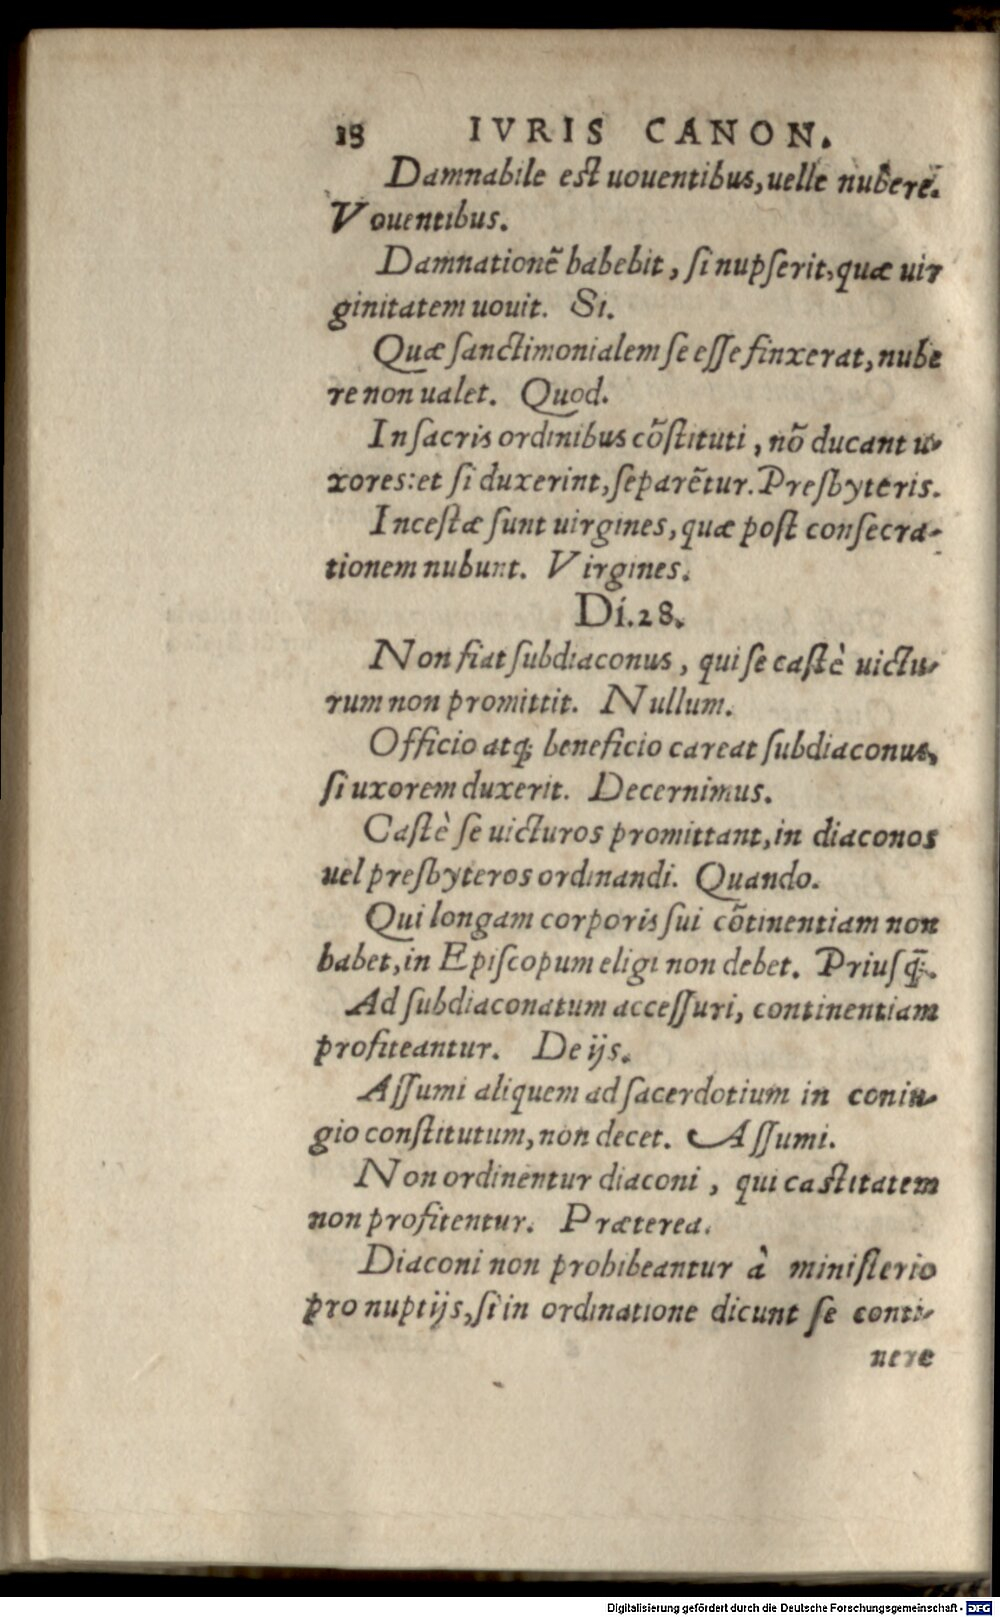 18 IVRIS CANON.
Damnabile est uouentibus, uelle nubere.
Vouentibus.
Damnationẽ habebit, si nupserit, quæ uir
ginitatem uouit. Si.
Quæ sanctimonialem se esse finxerat, nube
re non ualet. Quod.
In sacris ordinibus cõstituti, nõ ducant u-
xores: et si duxerint, separẽtur. Presbyteris.
Incestæ sunt uirgines, quæ post consecra-
tionem nubunt. Virgines.
Di. 28.
Non fiat subdiaconus, qui se castè uictu-
rum non promittit. Nullum.
Officio atq; beneficio careat subdiaconus,
si uxorem duxerit. Decernimus.
Castè se uicturos promittant, in diaconos
uel presbyteros ordinandi. Quando.
Qui longam corporis sui cõtinentiam non
habet, in Episcopum eligi non debet. Priusq̃;.
Ad subdiaconatum accessuri, continentiam
profiteantur. De ijs.
Assumi aliquem ad sacerdotium in coniu-
gio constitutum, non decet. Assumi.
Non ordinentur diaconi, qui castitatem
non profitentur. Præterea.
Diaconi non prohibeantur à ministerio
pro nuptijs, si in ordinatione dicunt se conti-
nere
Digitalisierung gefördert durch die Deutsche Forschungsgemeinschaft - DFG